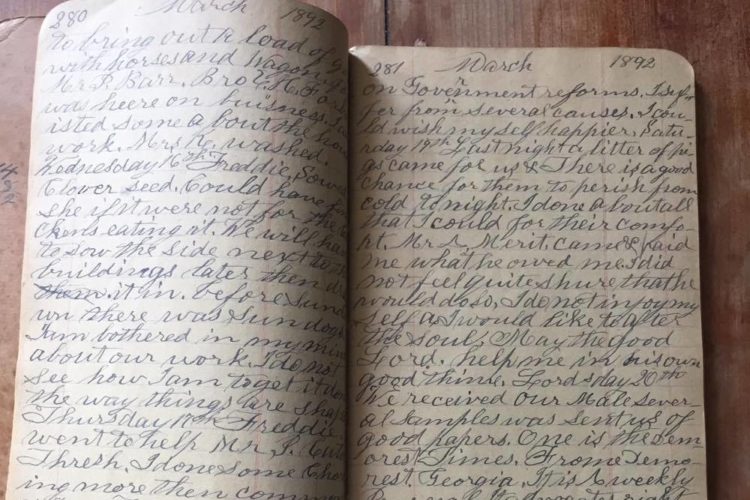 280 March 1892
to bring out a load of
with horses and wagon.
Mr P. Barr. Bro
was heere on buisness. I
isted some about the
work. Mrs R. washed.
Wednesday 16th Freddie, Sowe
Clover seed. Could have
she if it were not for the
ckens eating it. We will ha
to sow the side next to th
buildings later then dr
them it in. before Sund
wn there was Sun dogs
I am bothered in my min
about our work. I do no
see how I am to get it do
the way things are sha
Thursday 17th Freddie
went to help Mr. P.
Thresh. I done some Cho
ing more then comm
281 March 1892
on Government reforms. I suf
fer from several causes. I cou
ld wish my self happier. Satu
rday 19th Last night a litter of pi
gs came for us & There is a good
chance for them to perish from
cold to night. I done about all
that I could for their comfo
rt. Mr A. Merit. came & paid
me what he owed me. I did
not feel quite shure that he
would do so. I do not injoy my
self as I would like to after
the Soul. May the good
Lord. help me in his own
good time. Lords day 20th
We received our Male Sever
al Samples was sent us of
good papers. One is the Dem
orest Times. From Demo
rest. Georgia. It is A weekly